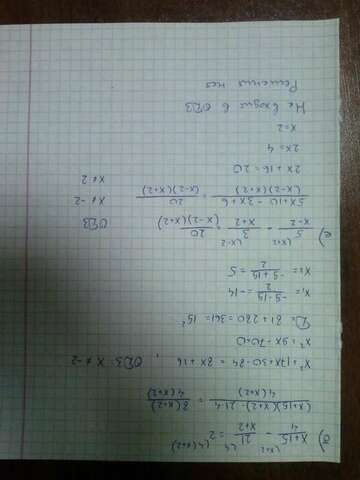 д) (x+2) (4 (4(x+2)
x+15/4 - 21/x+2 = 2
(x+15)(x+2)-21·4 / 4(x+2) = 8(x+2) / 4(x+2)
x²+17x+30-84 = 8x+16, ОДЗ: x ≠ -2
x²+9x-70
D = 81+280 = 361 = 19²
x₁ = -9-19/2 = -14
x₂ = -9+19/2 = 5
е) (x+2) (x-2)
5/x-2 - 3/x+2 = 20/(x-2)(x+2) ОДЗ
5x+10-3x+6/(x-2)(x+2) = 20/(x-2)(x+2) x ≠ -2
x ≠ 2
2x+16 = 20
2x = 4
x = 2
Не входит в ОДЗ
Решения нет